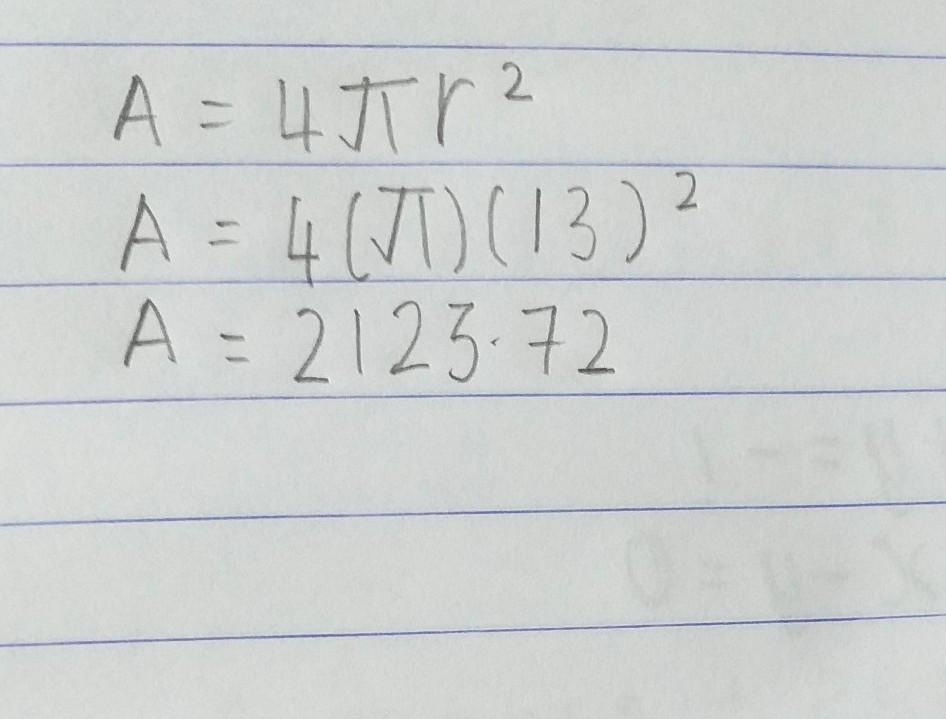 A = 4πr²
A = 4(π)(13)²
A = 2123.72